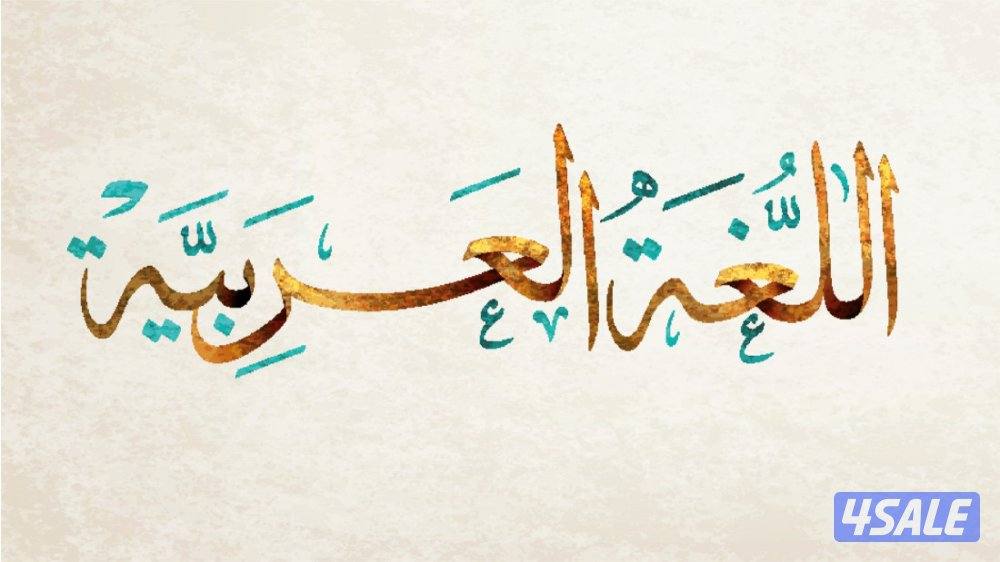 اللُّغَةُ العَرَبِيَّةُ
4SALE